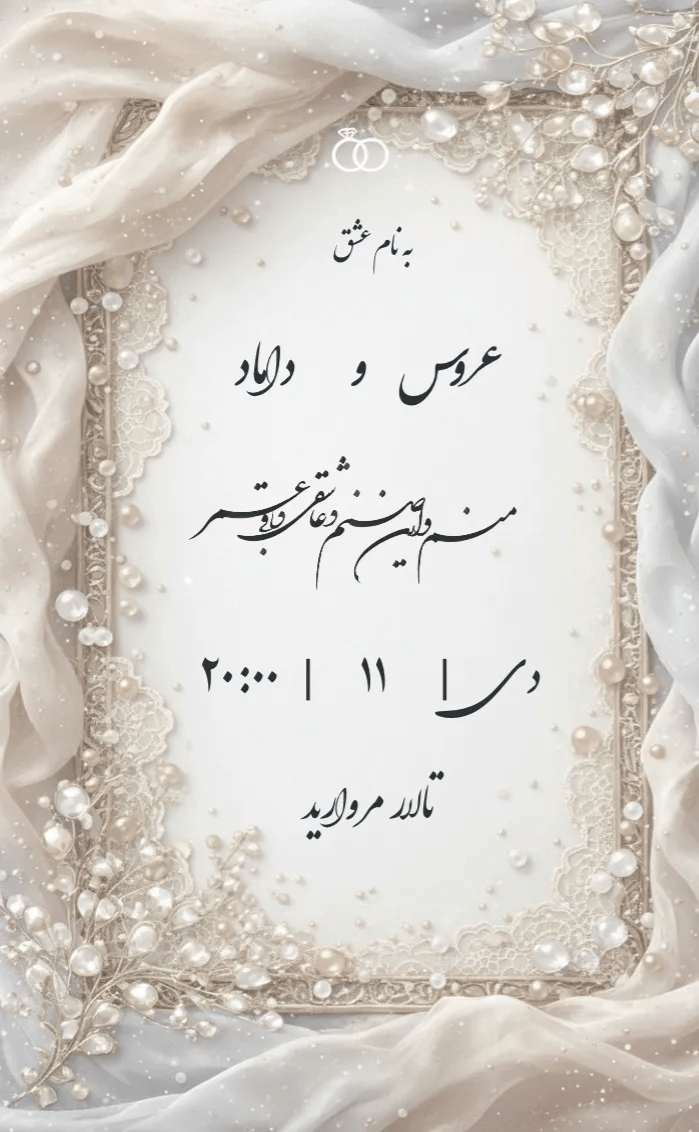 به نام عشق
عروس و داماد
منم و این صنم و عاشقی و باقی عمر
دی | ۱۱ | ۲۰:۰۰
تالار مروارید